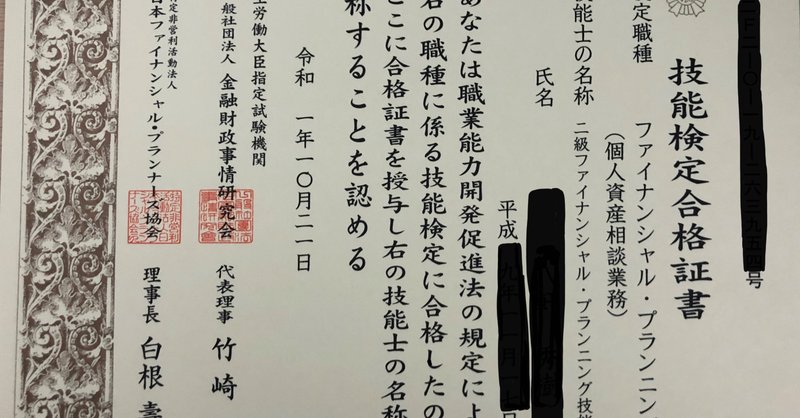 号
技能検定合格証書
定職種 ファイナンシャル・プランニン
(個人資産相談業務)
技能士の名称 二級ファイナンシャル・プランニング技
氏名
平成
日
あなたは職業能力開発促進法の規定によ
右の職種に係る技能検定に合格したの
ここに合格証書を授与し右の技能士の名称
称することを認める
令和 一年一〇月二一日
労働大臣指定試験機関
般社団法人 金融財政事情研究会 代表理事 竹崎
定非営利活動法人
日本ファイナンシャル・プランナーズ協会 理事長 白根 壽